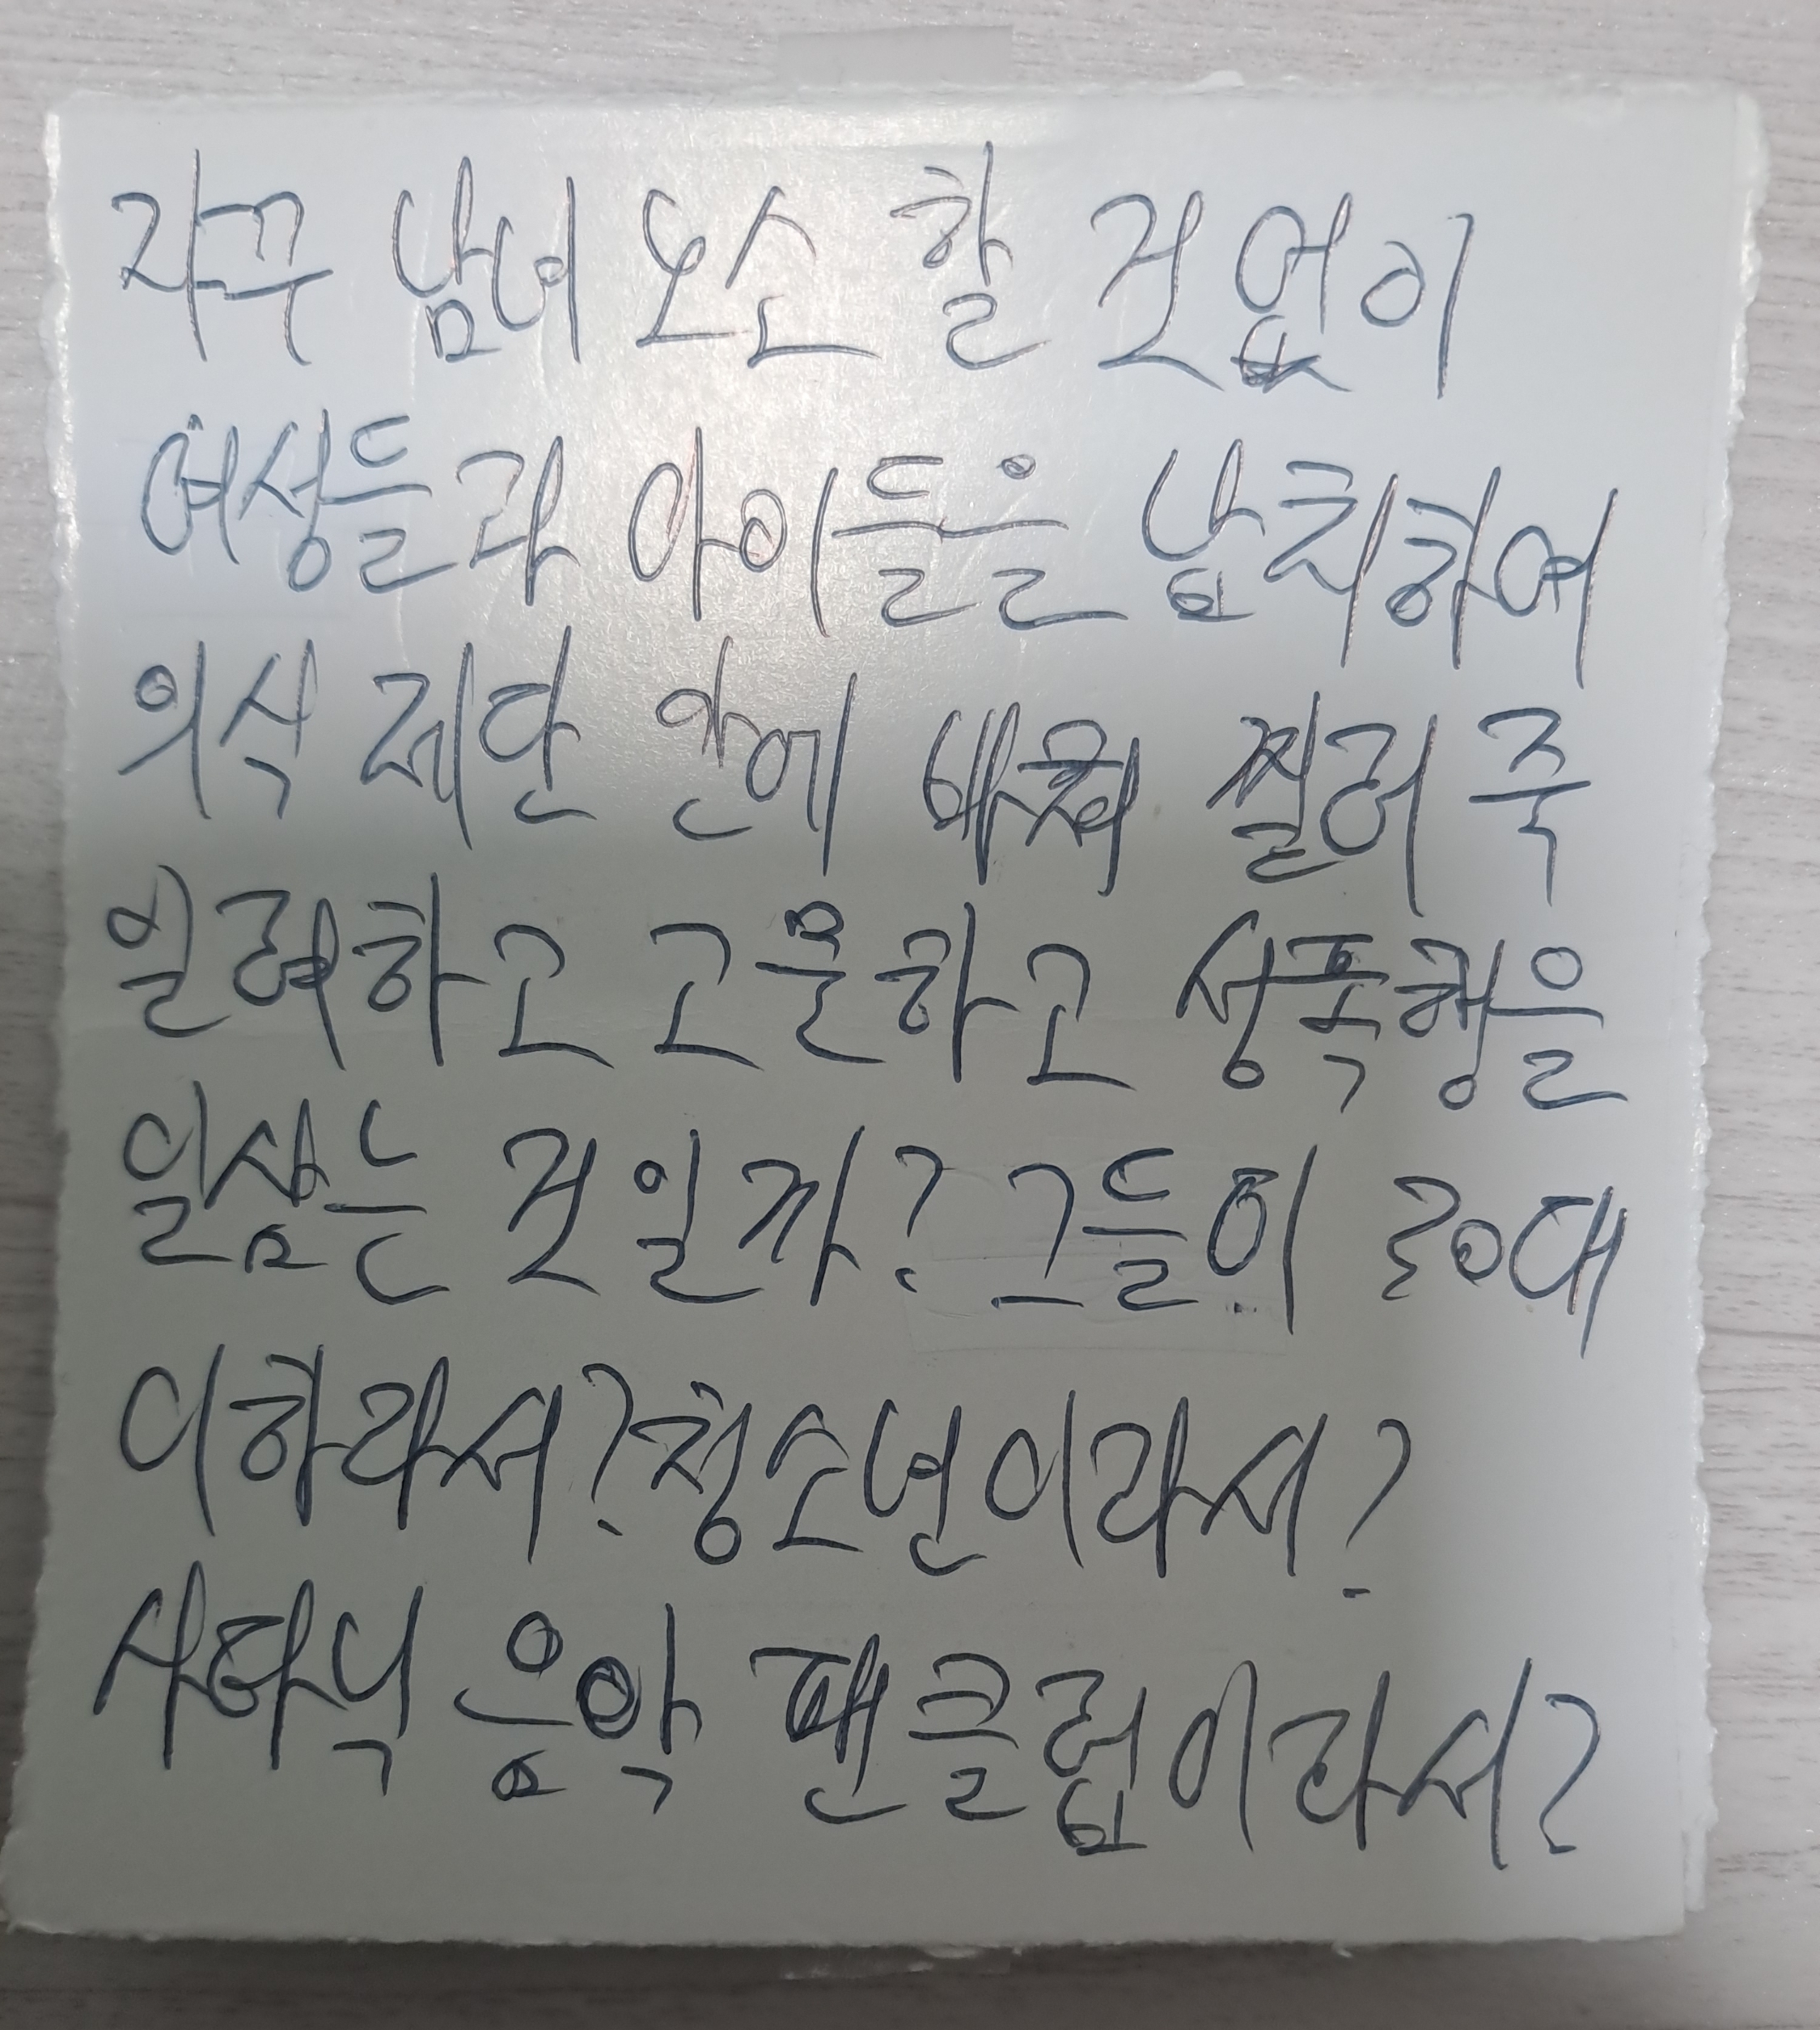 자꾸 남녀 노소 할 것 없이
여성들과 아이들을 납치하여
의식 제단 안에 바쳐 찔러 죽
일려하고 고문하고 성폭행을
일삼는 것일까? 그들이 30대
이하라서? 청소년이라서?
사타닉 음악 팬클럽이라서?